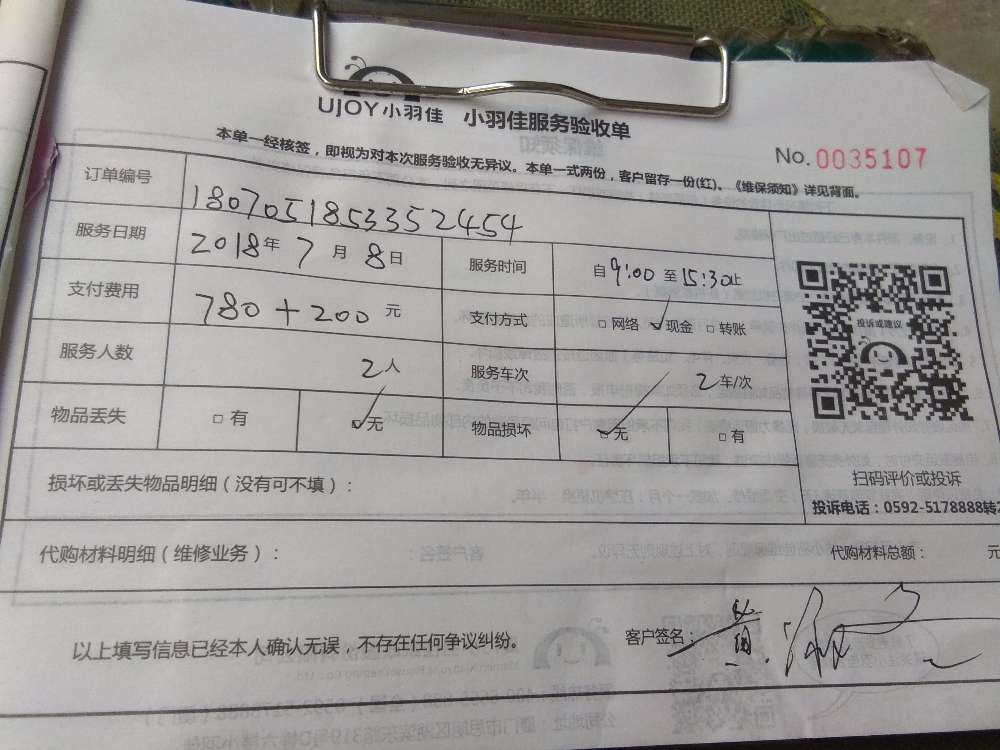 UJOY小羽佳 小羽佳服务验收单
本单一经核签，即视为对本次服务验收无异议。本单一式两份，客户留存一份(红)。《维保须知》详见背面。
No. 0035107
订单编号 1807051853352454
服务日期 2018年 7 月 8 日 服务时间 自9:00 至 15:30止
支付费用 780+200 元 支付方式 □ 网络 ☑ 现金 □ 转账
服务人数 2人 服务车次 2车/次
物品丢失 □ 有 ☑ 无 物品损坏 ☑ 无 □ 有
投诉或建议
损坏或丢失物品明细（没有可不填）：
扫码评价或投诉
投诉电话：0592-5178888转2
代购材料明细（维修业务）： 代购材料总额： 元
以上填写信息已经本人确认无误，不存在任何争议纠纷。 客户签名：